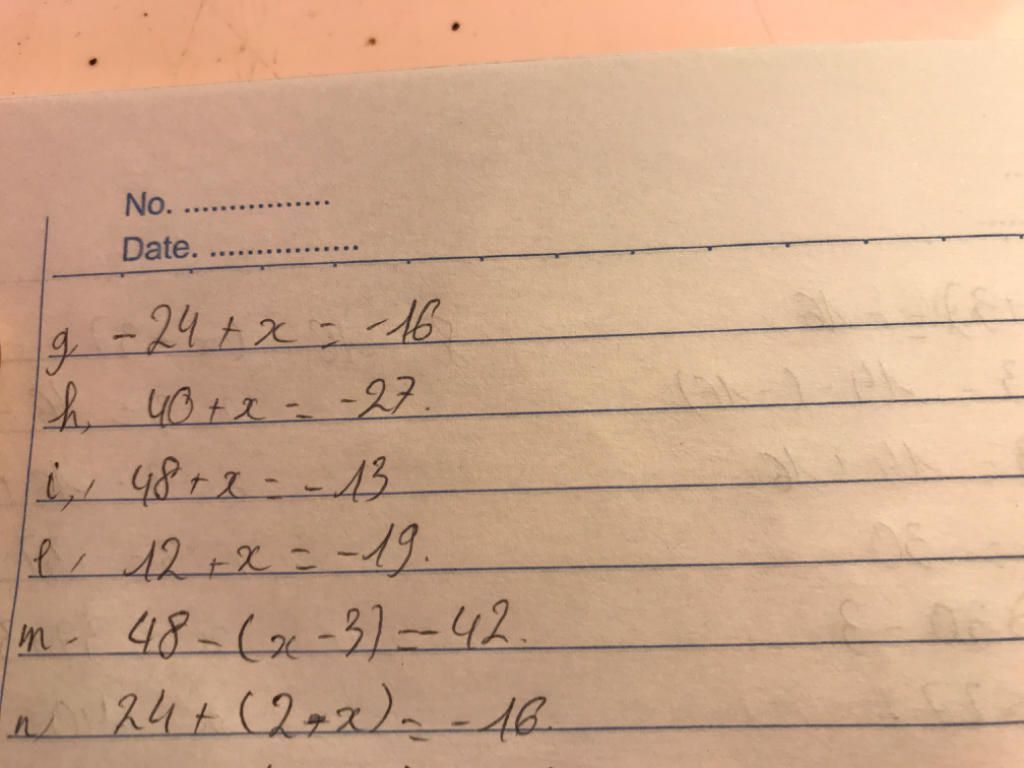 No. ................
Date. ................
g, -24 + x = -16
h, 40 + x = -27.
i, 48 + x = -13
l, 12 + x = -19.
m - 48 - (x - 3) = 42.
n, 24 + (2 + x) = -16.